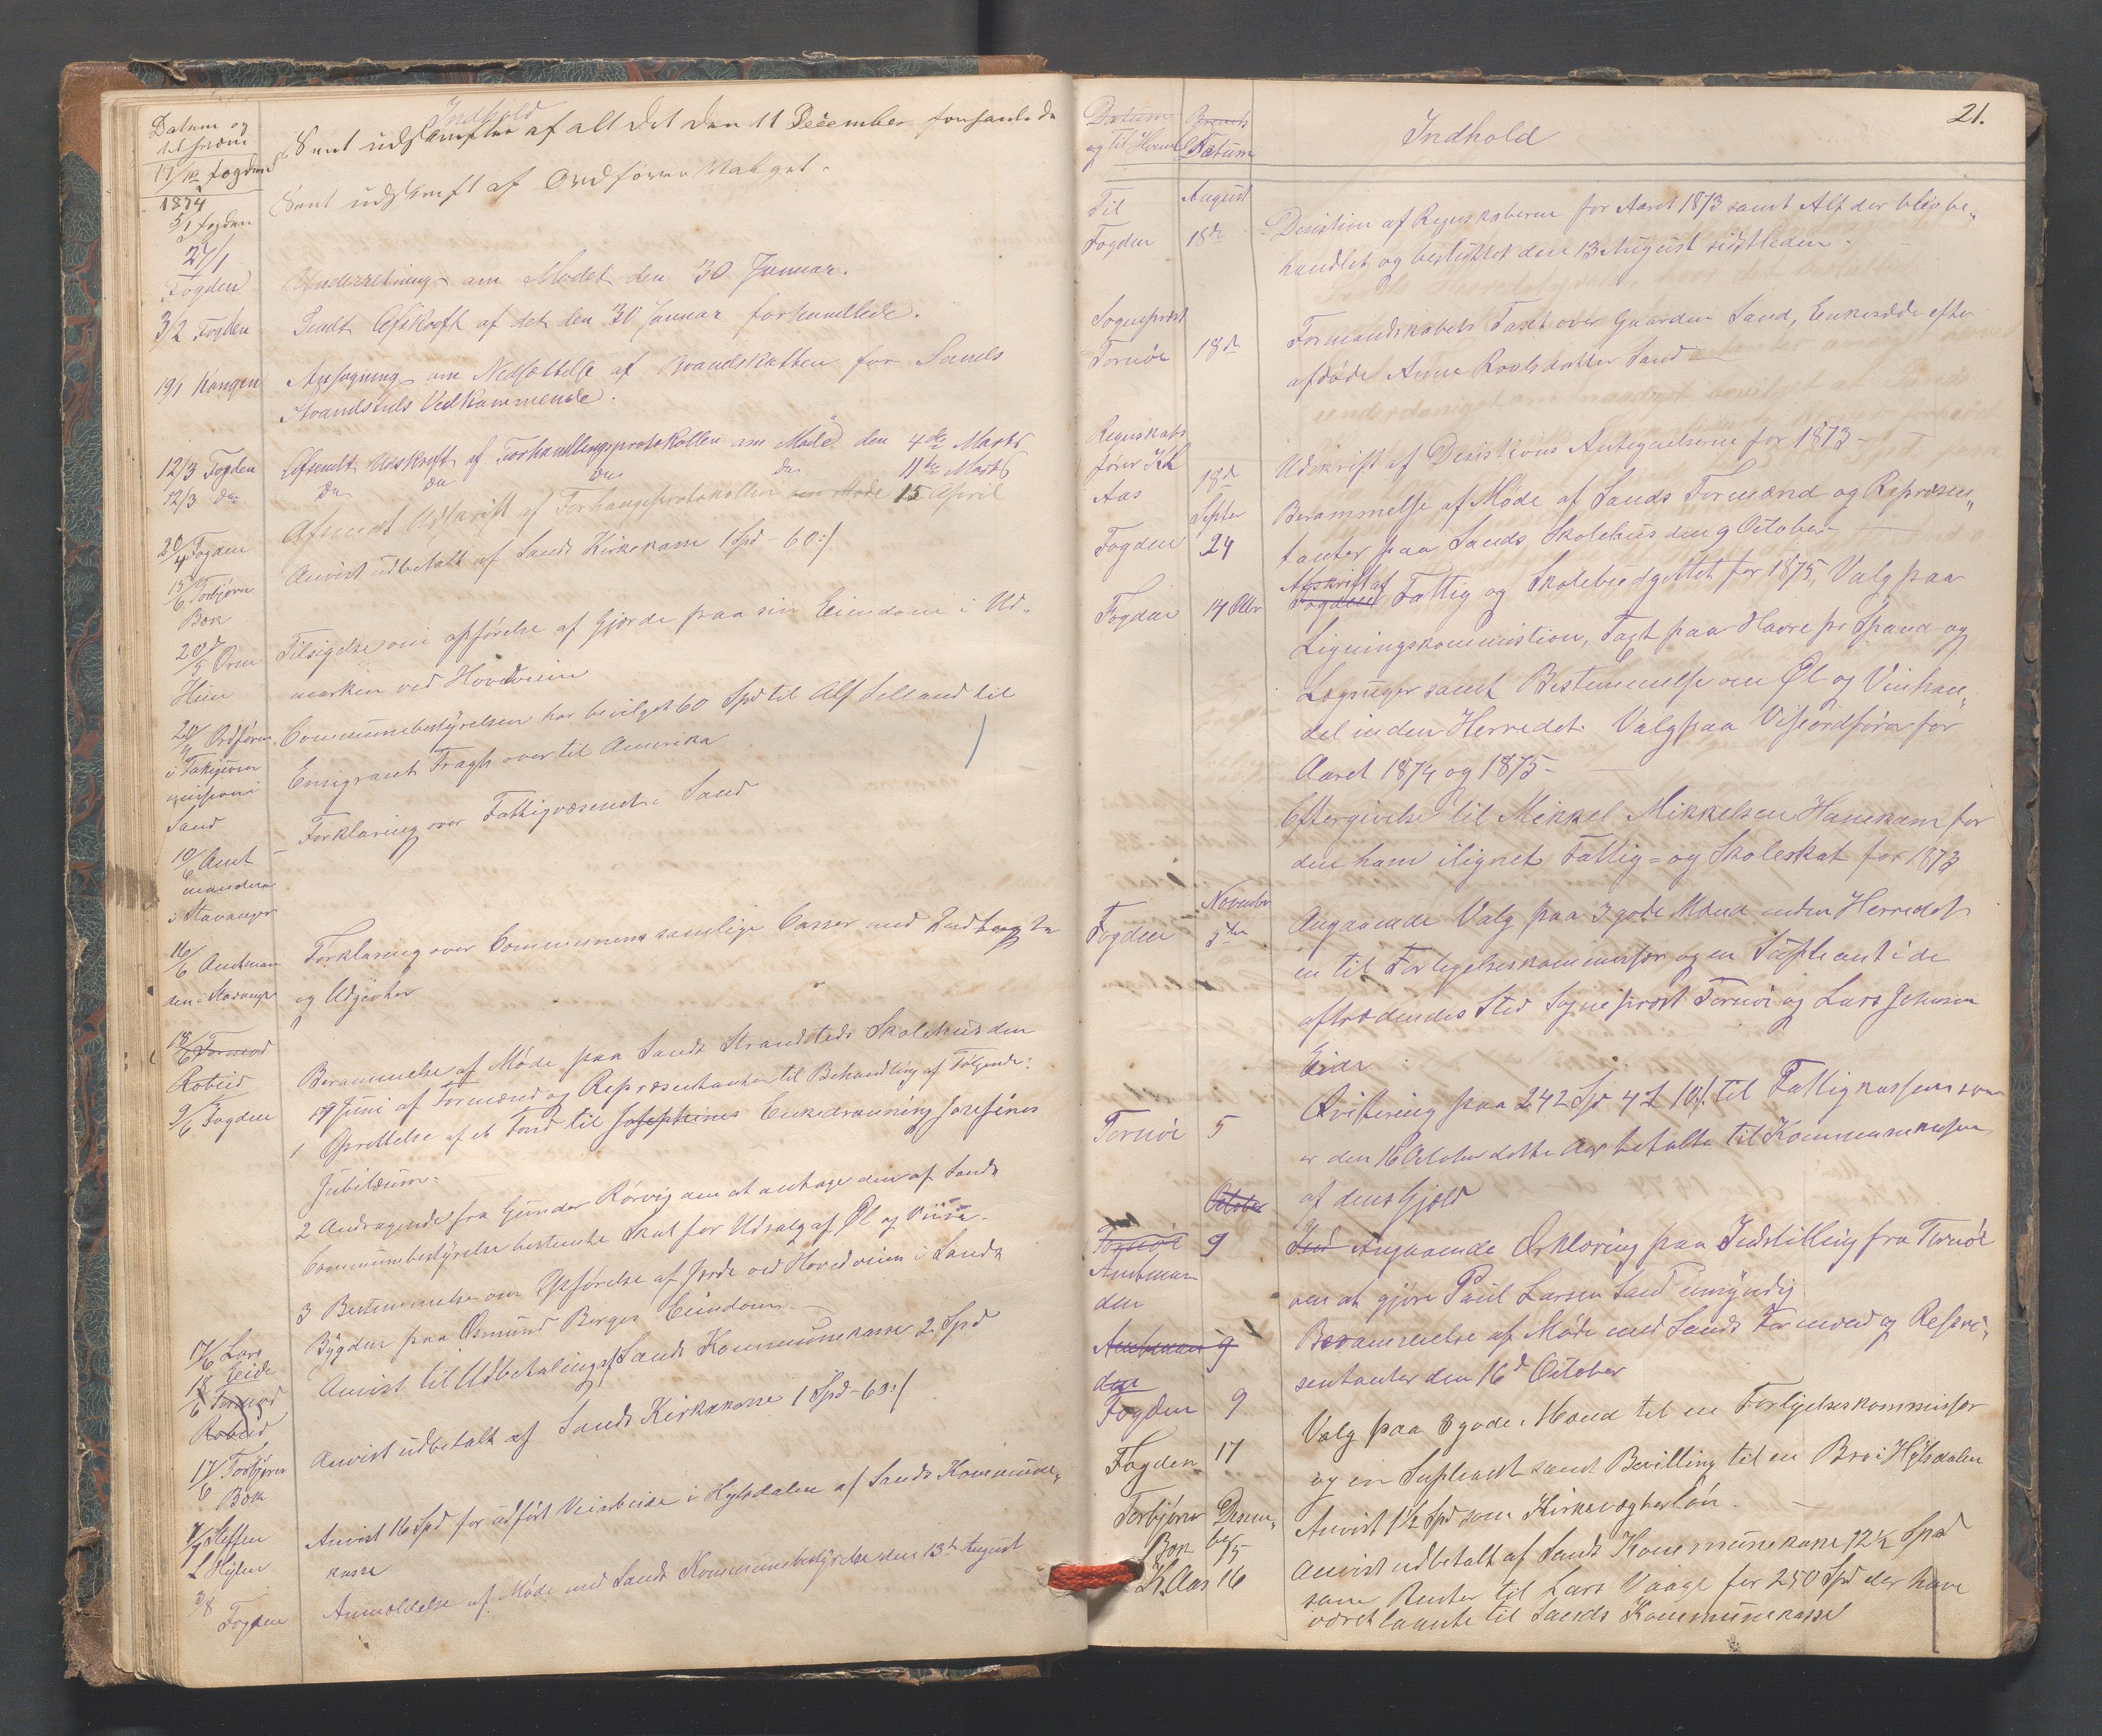 Datum og
til hvem
Indhold
17/12 Fogden
Sent udskrifter af alt det den 11 December forhandlede
1874
5/1 Fogden
Sent udskrift af Ordfører Valget.
27/1
Fogden
Underretning om Mødet den 30 Januar.
3/2 Fogden
Sendt Afskrift af det den 30 Januar forhandlede.
19/1 Kongen
Ansøgning om Nedsættelse af Brandskatten for Sands
Strandsteds Vedkommende.
12/3 Fogden
Afsendt Udskrift af Forhandlingsprotokollen om Møde den 4de Marts
12/3 do
do do do do 11te Marts
20/4 Fogden
Afsendt Udskrift af Forhangsprotokollen om Møde 15 April
15/6 Torbjørn
Bok
Anvist udbetalt af Sands Kirkekasse 1 Spd - 60 :/
20/5 Orm
Hiim
Tilsigelse om opførelse af Gjærde paa sin Eiendom i Ud-
marken ved Hovedveien
20/4 Ordføreren
i Fattigcom
missioni
Sand
Communebestyrelsen har bevilget 60 Spd til Alf Lelland til
Emigrant Fragt over til Amerika
10/6 Amt
manden
i Stavanger
Forklaring over Fattigvæsenet i Sand
16/6 Amtman
den i Stavanger
Forklaring over Communens samtlige Casser med Indtægter
og Udgivter
18/6 Formænd
Robud
9/6 Fogden
Berammelse af Møde paa Sands Strandsteds Skolehus den
17 Juni af Formænd og Repræsentanter til Behandling af Følgende:
1 Oprettelse af et Fond til Josephines Enkedronning Josefines
Jubilæum.
2 Andragende fra Gunder Rørvig om at antage den af Sands
Communebestyrelse bestemte Skat for Udsalg af Øl og Viin.
3 Bestemmelse om Opførelse af Gjerde ved Hovedveien i Sands
Bygden paa Osmund Berges Eiendom.
17/6 Lars
Eide
Anvist til Udbetaling af Sands Kommunekasse 2 Spd
18/6 Formænd
Robud
17/6 Torbjørn
Bok
Anvist udbetalt af Sands Kirkekasse 1 Spd - 60 :/
4/7 Steffen
L Hylen
Anvist 16 Spd for udført Veiarbeide i Hylsdalen af Sands Kommune-
kasse
3/8
Fogden
Anmeldelse af Møde med Sands Kommunebestyrelse den 13de August
21.
Datum
og Til Hvem
Datum
Indhold
Til
Fogden
August
18de
Desistion af Regnskaberne for Aaret 1873 samt Alt der blev be-
handlet og besluttet den 13 August sidstleden.
Sogneprest
Tornøe
18de
Formandskabets Taxt over Gaarden Sand, Enkesæde efter
afdøde Anne Roalsdatter Sand
Regnskabs
fører KL
Aas
18de
Udskrift af Desistions Antegnelserne for 1873 -
Septer
Fogden
24
Berammelse af Møde af Sands Formænd og Repræsen-
tanter paa Sands Skolehus den 9 October
Fogden
14 Octbr
Afskrift af
Fogden Fattig og Skolebudgettet for 1875, Valg paa
Ligningskommistion, Taxt paa Havre pr Spand og
Logauger samt Bestemmelse om Øl og Vinhan-
del inden Herredet. Valg paa Viseordfører for
Aaret 1874 og 1875 -
Eftergivelse til Mikkel Mikkelsen Hanekam for
den ham ilignet Fattig- og Skoleskat for 1873
November
Fogden
5te
Angaaende Valg paa 3 gode Mænd inden Herredet
en til Forligelseskommissær og en Supleant i de
aftrædendes Sted Sogneprest Tornøe og Lars Johnsen
Eide
Tornøe
5
Avistering paa 242 Spd 4 L 10 /. til Fattigkassen som
er den 16 October dette Aar betalte til Kommunekassen
af dens Gjæld
October
Tornøe
9
Amtman
den
Ind Angaaende Ærklæring paa Indstilling fra Tornøe
om at gjøre Poul Larsen Sand umyndig
Amtman 9
den
Fogden
9
Berammelse af Møde med Sands Formænd og Repræ-
sentanter den 16de October
Fogden
17
Valg paa 3 gode Mænd til en Forligelseskommissær
og en Supleant samt Bevilling til en Bro i Hylsdalen
Torbjørn
Bok
Decem-
ber
5
Anvist 1½ Spd som Kirkevægterløn.
K. Aas 16
Anvist udbetalt af Sands Kommunekasse 12½ Spd
som Renter til Lars Vaage for 250 Spd der have
været laante til Sands Kommunekasse